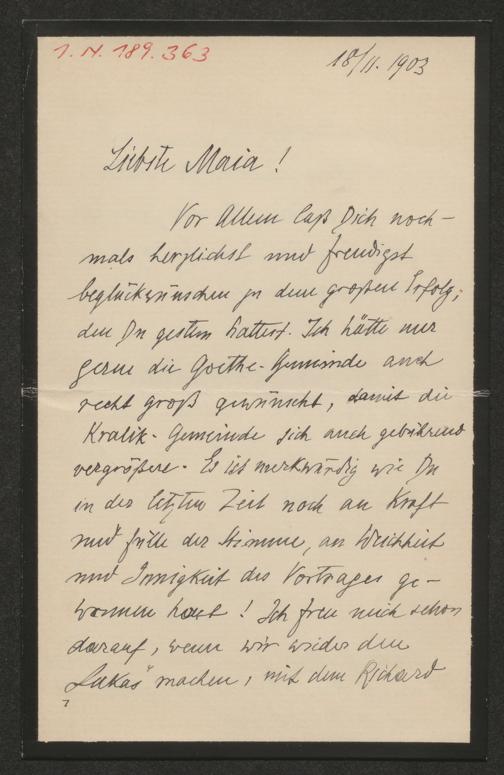 I. N. 189.363
18/11. 1903
Liebste Maia!
Vor Allem laß Dich noch-
mals herzlichst und freudigst
beglückwünschen zu dem großen Erfolg,
den Du gestern hattest. Ich hätte nur
gerne die Goethe-Gemeinde auch
recht groß gewünscht, damit die
Kralik-Gemeinde sich auch gebührend
vergrößere. Es ist merkwürdig wie Du
in der letzten Zeit noch an Kraft
und Fülle der Stimme, an Weichheit
und Innigkeit des Vortrages ge-
wonnen hast! Ich freu mich schon
darauf, wenn wir wieder den
Lukas" machen, mit dem Richard
7